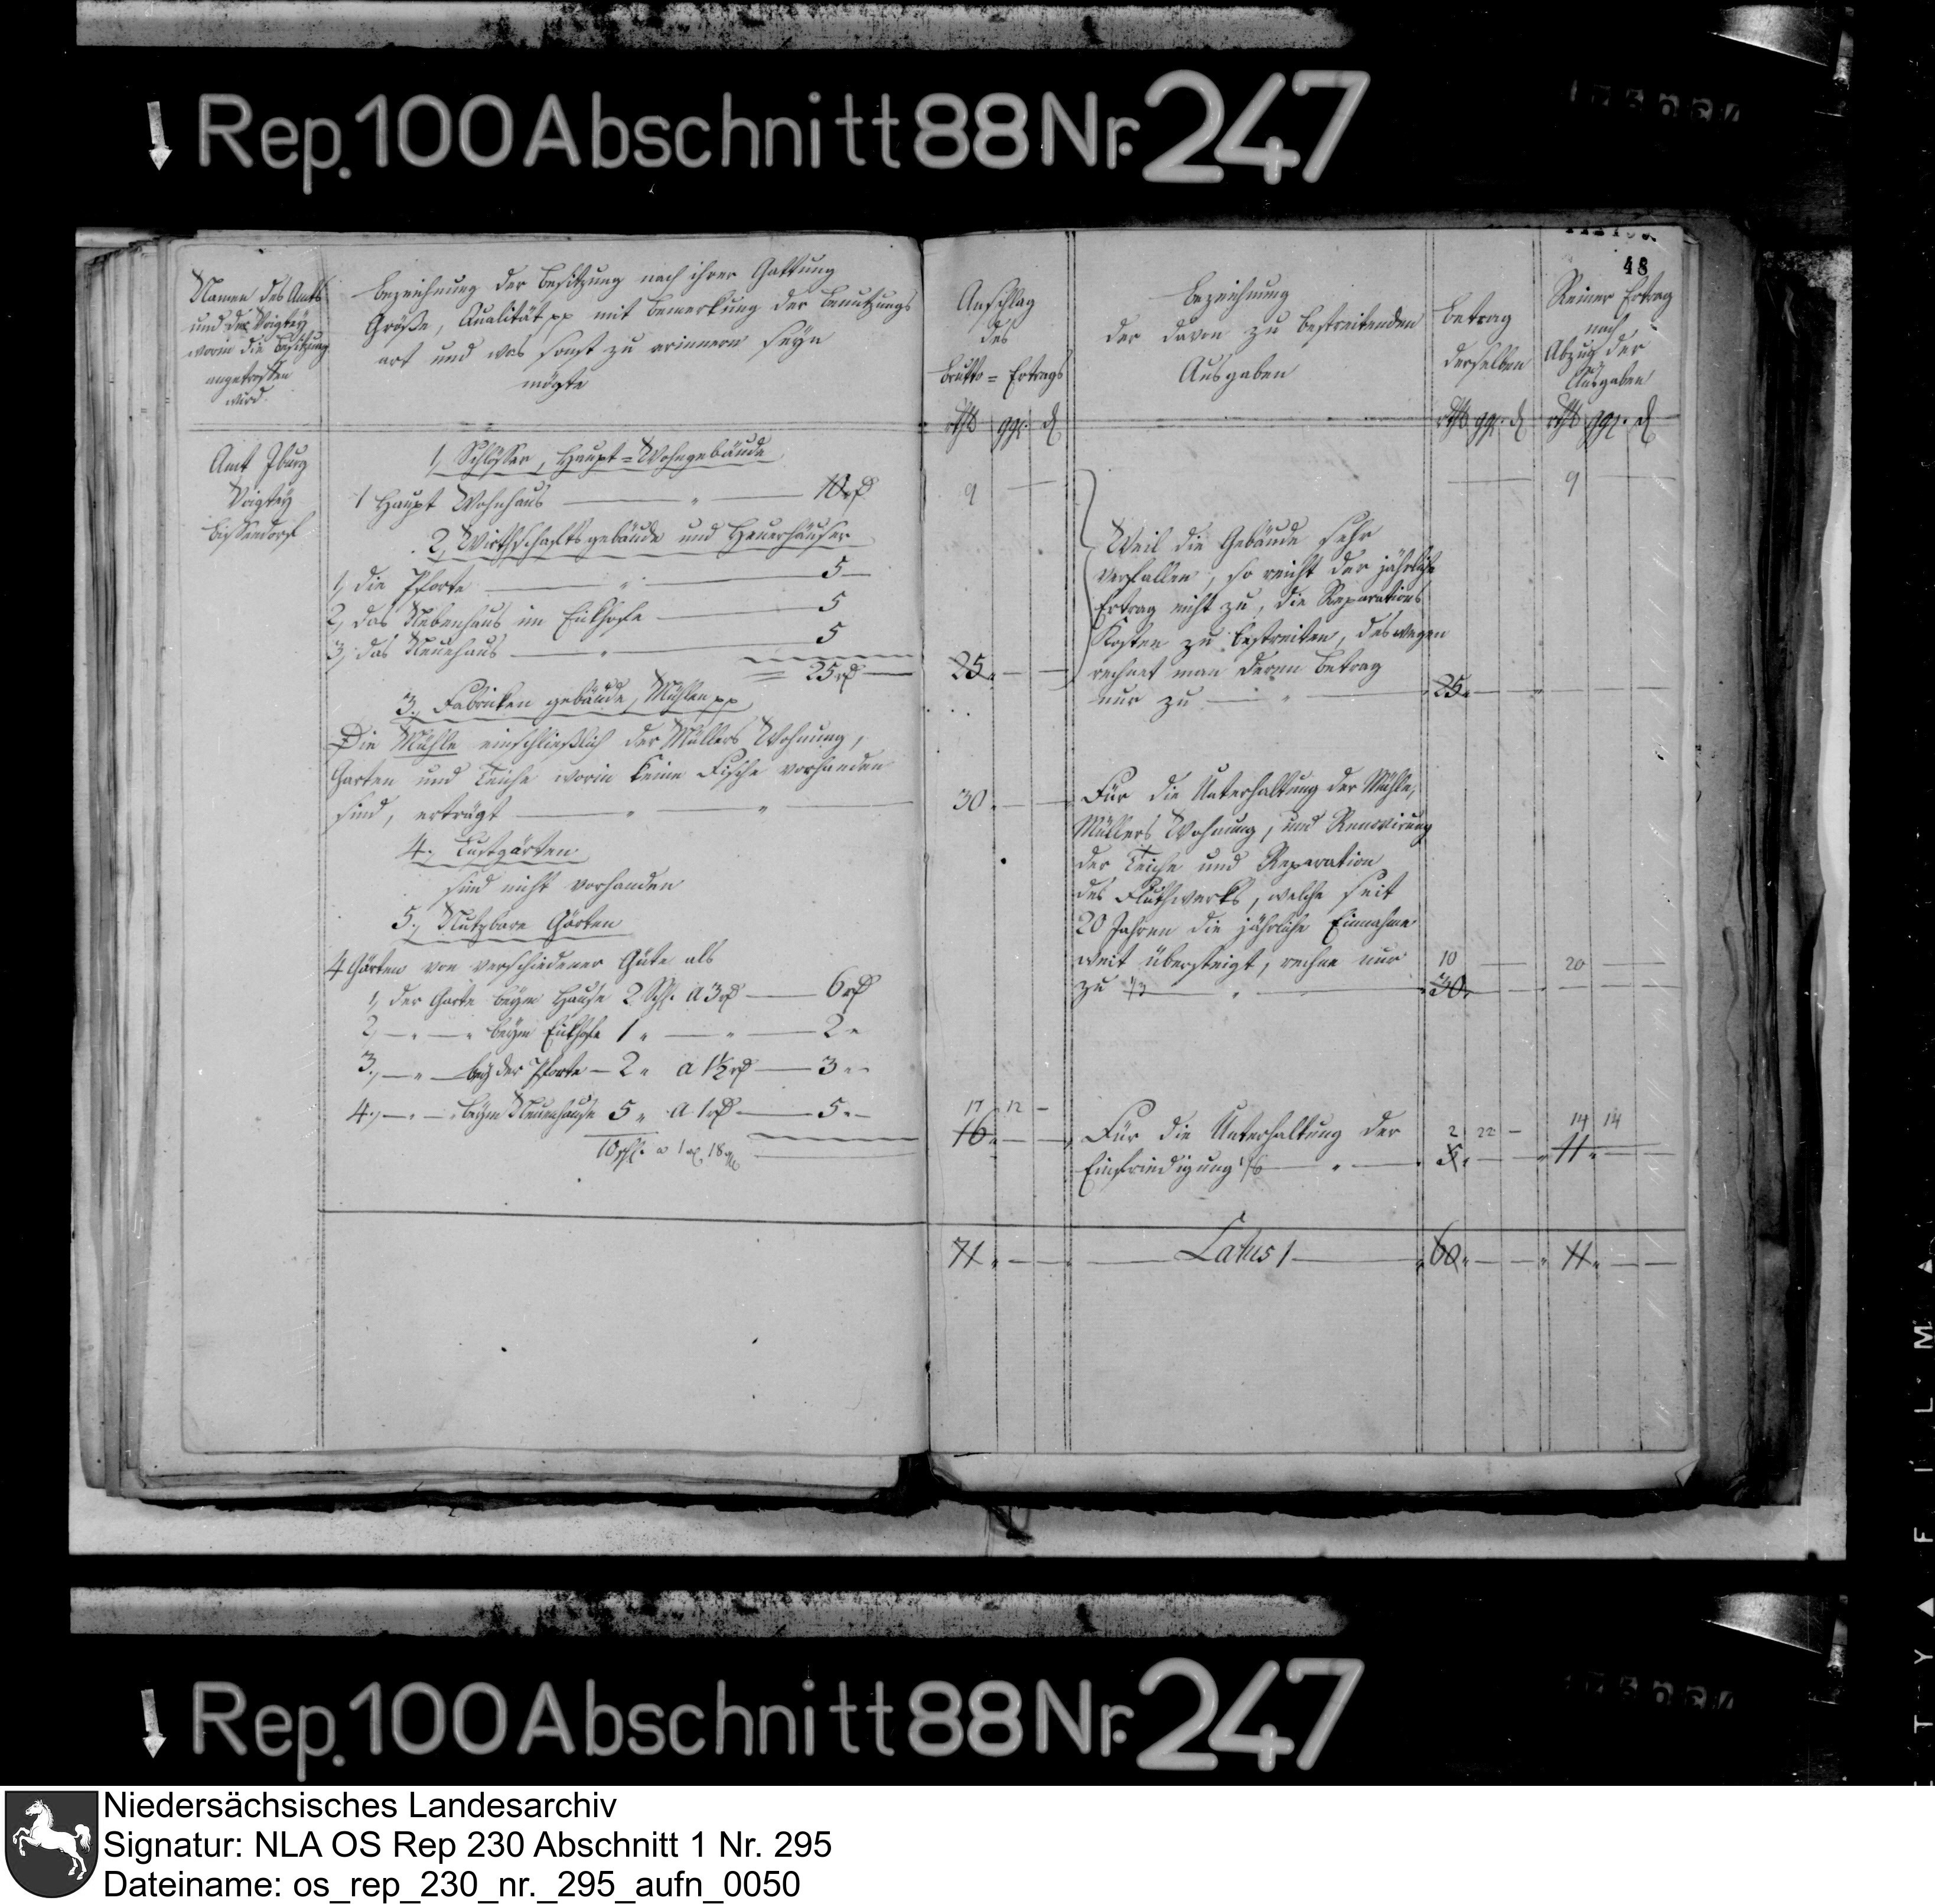 Rep. 100 Abschnitt 88 Nr. 247
48
Namen des Amts
und der Voigtey
worin die Besitzung
angetroffen
wird.
Bezeichnung der Besitzung nach ihrer Gattung
Größe, Qualität pp mit Bemerkung der Benutzungs
art und was sonst zu erinnern seyn
mögte
Amt Iburg
Voigtey
Bissendorf
1, Schlösser, Haupt=Wohngebäude
1 Haupt Wohnhaus — " — 10 rt
2, Wirthschaftsgebäude und Heuerhäuser
1, die Pforte — " — 5 —
2, das Nebenhaus im Eickhofe — 5
3, das Neuehaus — " — 5
= 25 rt —
3., Fabriken gebäude, Mühlen pp
Die Mühle einschließlich der Müllers Wohnung,
Garten und Teiche worin keine Fische vorhanden
sind, erträgt — " — " —
4., Lustgärten
sind nicht vorhanden
5., Nutzbare Gärten
4 Gärten von verschiedener Güte als
1, der Garte beym Hause 2 Schl. a 3 rt — 6 rt
2, — " — " beym Eickhofe 1 " — " — 2 "
3., — " — bey der Pforte — 2 " a 1½ rt — 3 " "
4., — " — " beym Neuenhause 5 " a 1 rt — 5 " —
10 schl. a 1 rt 18 ggl
Anschlag
des
Brutto = Ertrags
rthl ggl. d
9 —
25 " — —
30 " — —
17 12 —
16 " — —
71 " — —
Bezeichnung
der davon zu bestreitenden
Ausgaben
Weil die Gebäude sehr
verfallen, so reicht der jährliche
Ertrag nicht zu, die Reparations
Kosten zu bestreiten, deswegen
rechnet man deren Betrag
nur zu — " —
Für die Unterhaltung der Mühle,
Müllers Wohnung, und Renovirung
der Teiche und Reparation
des Fluthwerks, welche seit
20 Jahren die jährliche Einnahme
weit übersteigt, rechne nur
zu 1/3 — " —
Für die Unterhaltung der
Einfriedigung 1/6 — " —
Latus 1
Betrag
derselben
rthl ggl. d
25 " — —
10 —
30 " — —
2 22 —
5 " — —
60 " — —
Reiner Ertrag
nach
Abzug der
Ausgaben
rthl ggl. d
9 —
20 —
14 14
11 " — —
11 " — —
Rep. 100 Abschnitt 88 Nr. 247
Niedersächsisches Landesarchiv
Signatur: NLA OS Rep 230 Abschnitt 1 Nr. 295
Dateiname: os_rep_230_nr._295_aufn_0050